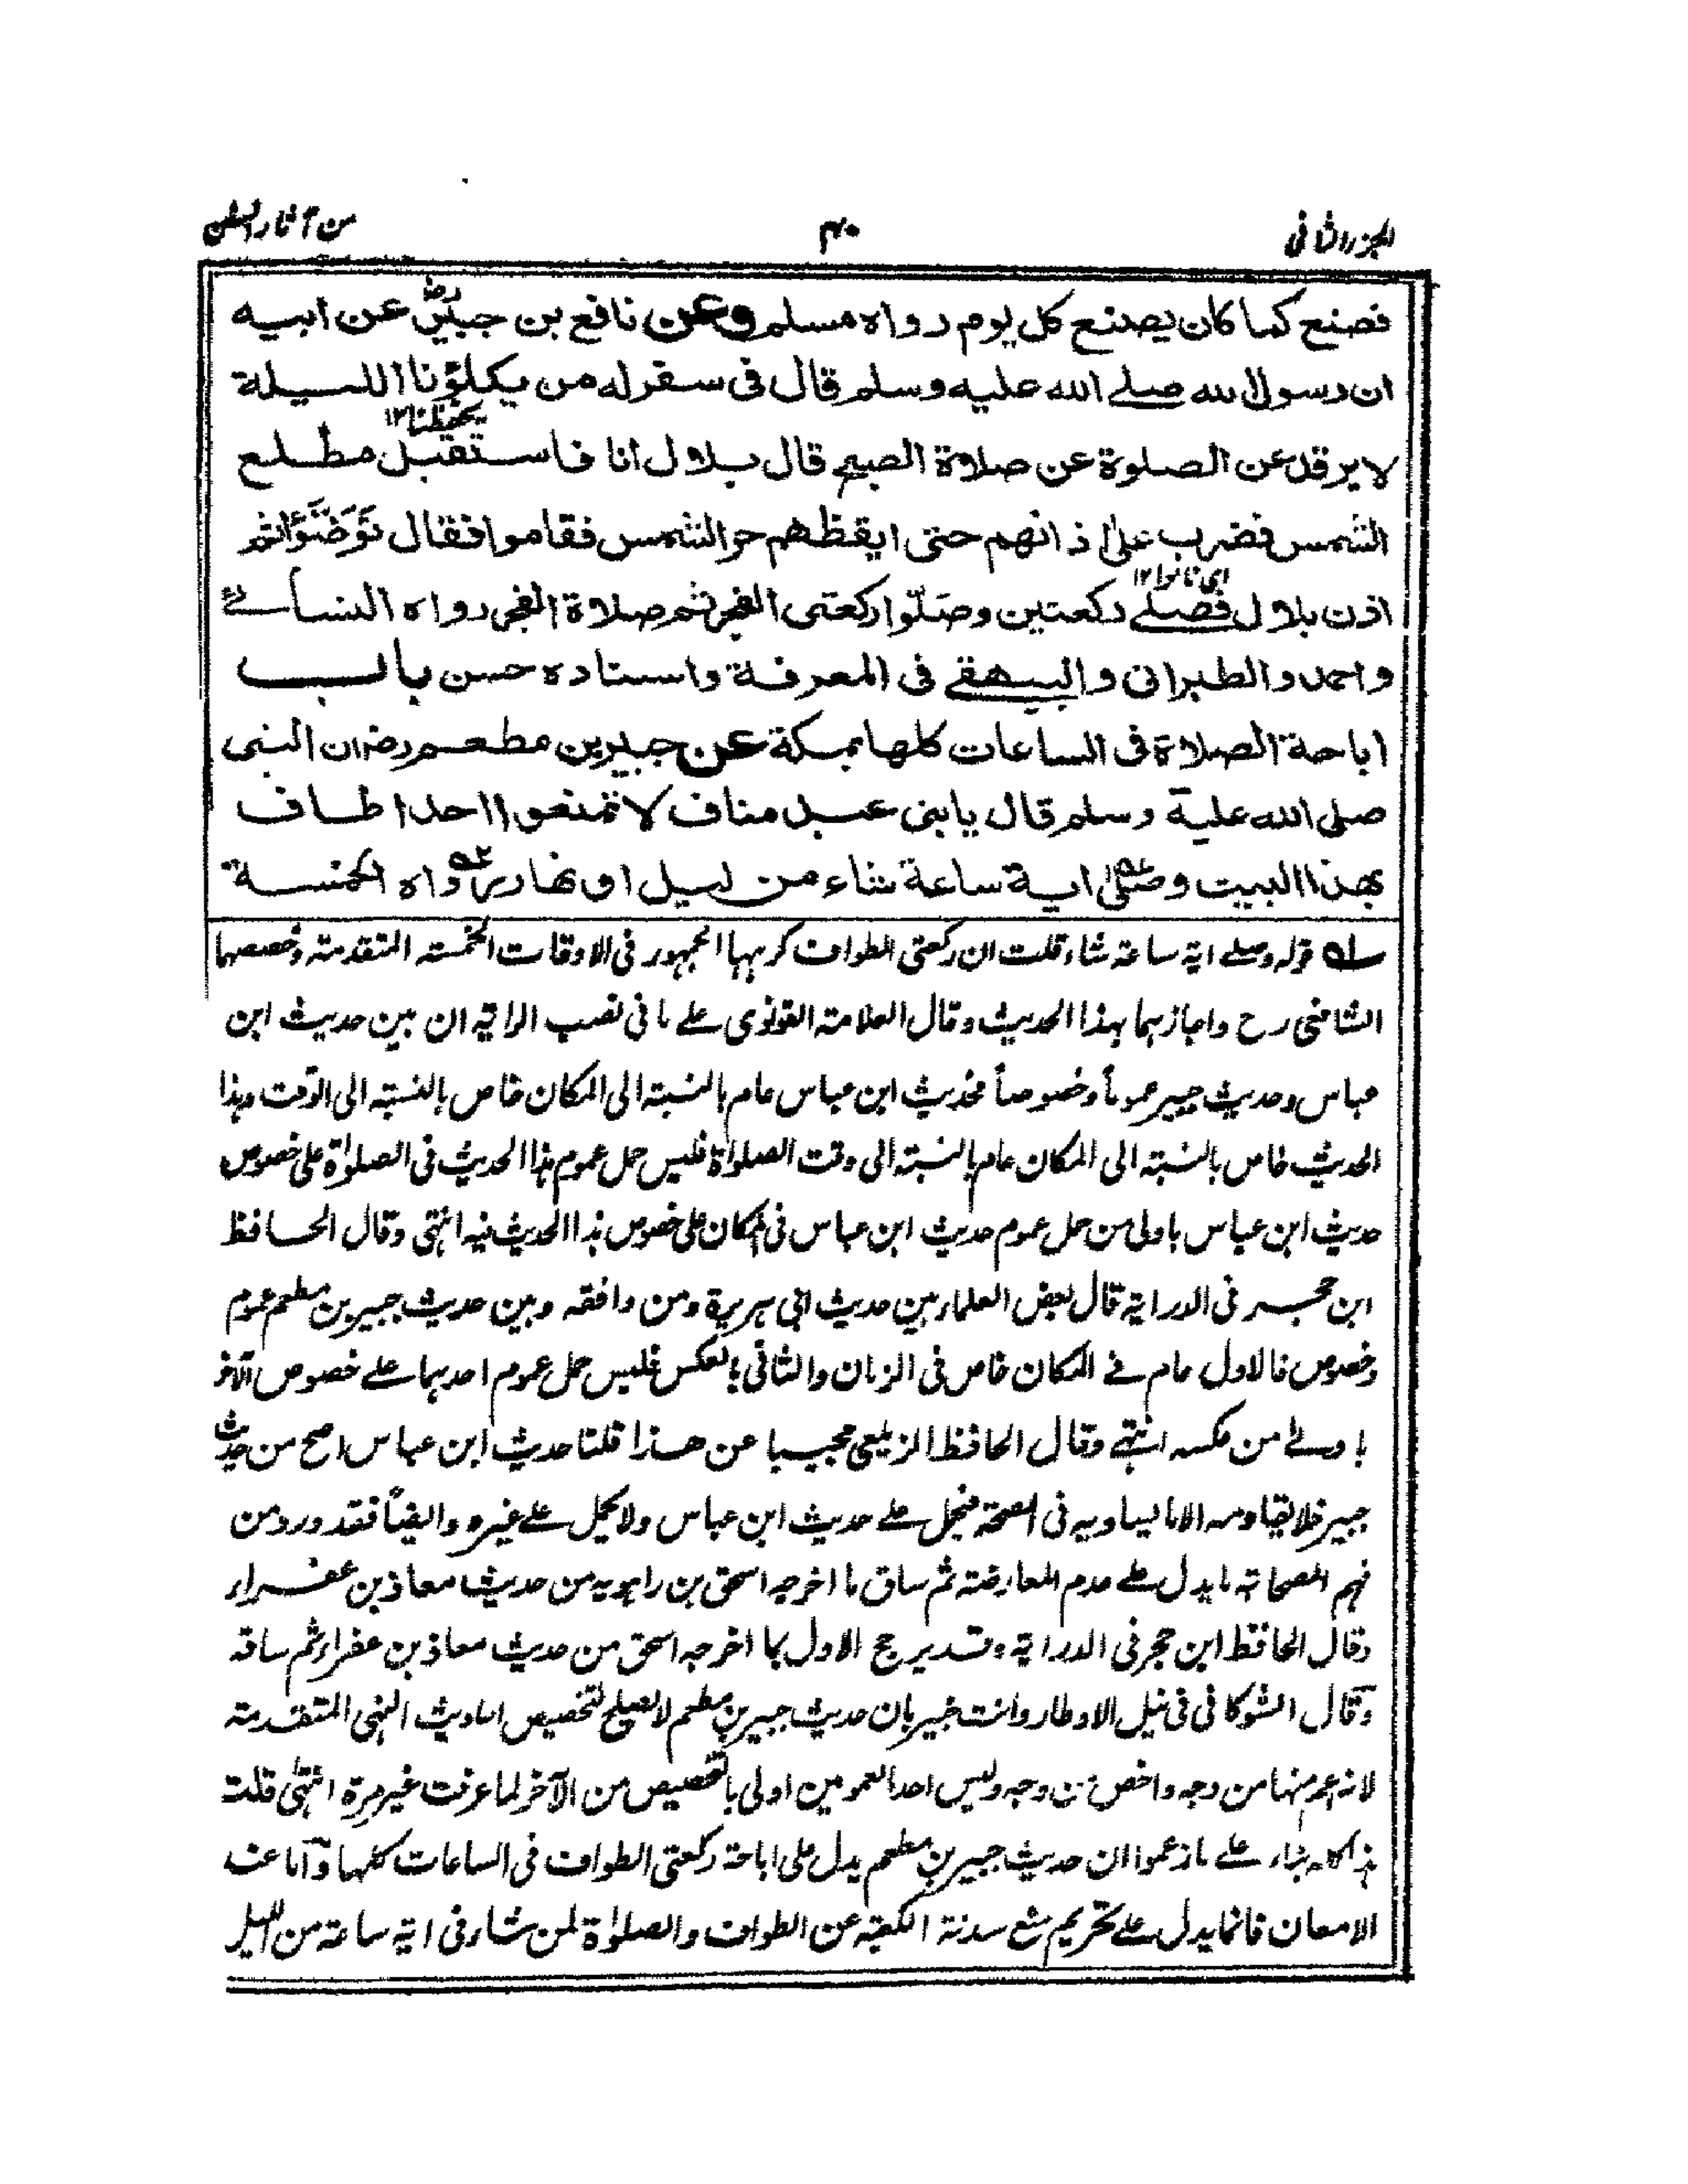 الجزء الثانی ۴۰ من آثار السنن
فصنع كما كان يصنع كل يوم رواه مسلم وعن نافع بن جبير رض عن ابيه
ان رسول الله صلے الله عليه وسلم قال فى سفر له من يكلؤنا الليلة
يحفظنا ۱۲
لا يرقد عن الصلوة عن صلاة الصبح قال بلال انا فاستقبل مطلع
الشمس فضرب علىٰ اذانهم حتى ايقظهم حر الشمس فقاموا فقال تَوَضَّؤُا ثم
ای ناموا ۱۲
اذن بلال فصلے ركعتين وصَلّوا ركعتى الفجر ثم صلاة الفجر رواه النسائے
واحمد والطبرانى والبيهقے فى المعرفة واسناده حسن باب
اباحة الصلاة فى الساعات كلها بمكة عن جبير بن مطعم رض ان النبى
صلى الله عليه وسلم قال يا بنى عبد مناف لا تمنعوا احدا طاف
بهذا البيت وصلىٰ اية ساعة شاء من ليل او نهار رواه الخمسة
سله قوله وصلے اية ساعة شاء قلت ان ركعتى الطواف كرهها الجمهور فى الاوقات الخمسة المتقدمة وخصصها
الشافعى رح واجازهما بهذا الحديث وقال العلامة القونوى علے ما فى نصب الراية ان بين حديث ابن
عباس وحديث جبير عموماً وخصوصاً فحديث ابن عباس عام بالنسبة الى المكان خاص بالنسبة الى الوقت وهذا
الحديث خاص بالنسبة الى المكان عام بالنسبة الى وقت الصلوٰة فليس حمل عموم هذا الحديث فى الصلوٰة على خصوص
حديث ابن عباس باولى من حمل عموم حديث ابن عباس فى المكان على خصوص هذا الحديث فيه انتهى وقال الحافظ
ابن حجر فى الدراية قال بعض العلماء بين حديث ابى هريرة ومن وافقه وبين حديث جبير بن مطعم عموم
وخصوص فالاول عام فے المكان خاص فى الزمان والثانى بالعكس فليس حمل عموم احدهما علے خصوص الآخر
باولےٰ من عكسه انتهے وقال الحافظ الزيلعى مجيبا عن هذا قلنا حديث ابن عباس اصح من حديث
جبير فلا يقاومه الا ما يساويه فى الصحة فيحمل علے حديث ابن عباس ولا يحمل علے غيره وايضاً فقد ورد من
فهم الصحابة ما يدل علے عدم المعارضة ثم ساق ما اخرجه اسحق بن راهويه من حديث معاذ بن عفراء
وقال الحافظ ابن حجر فى الدراية وقد يرجح الاول بما اخرجه اسحق من حديث معاذ بن عفراء ثم ساقه
وقال الشوكانى فى نيل الاوطار وانت خبير بان حديث جبير بن مطعم لا يصلح لتخصيص احاديث النهى المتقدمة
لانه اعم منها من وجه واخص من وجه وليس احد العمومين اولى بالتخصيص من الآخر لما عرفت غير مرة انتهىٰ قلت
هذا كله بناء علے ما زعموا ان حديث جبير بن مطعم يدل على اباحة ركعتى الطواف فى الساعات كلها وآما عند
الامعان فانما يدل علے تحريم منع سدنة الكعبة عن الطواف والصلوٰة لمن شاء فى اية ساعة من الليل